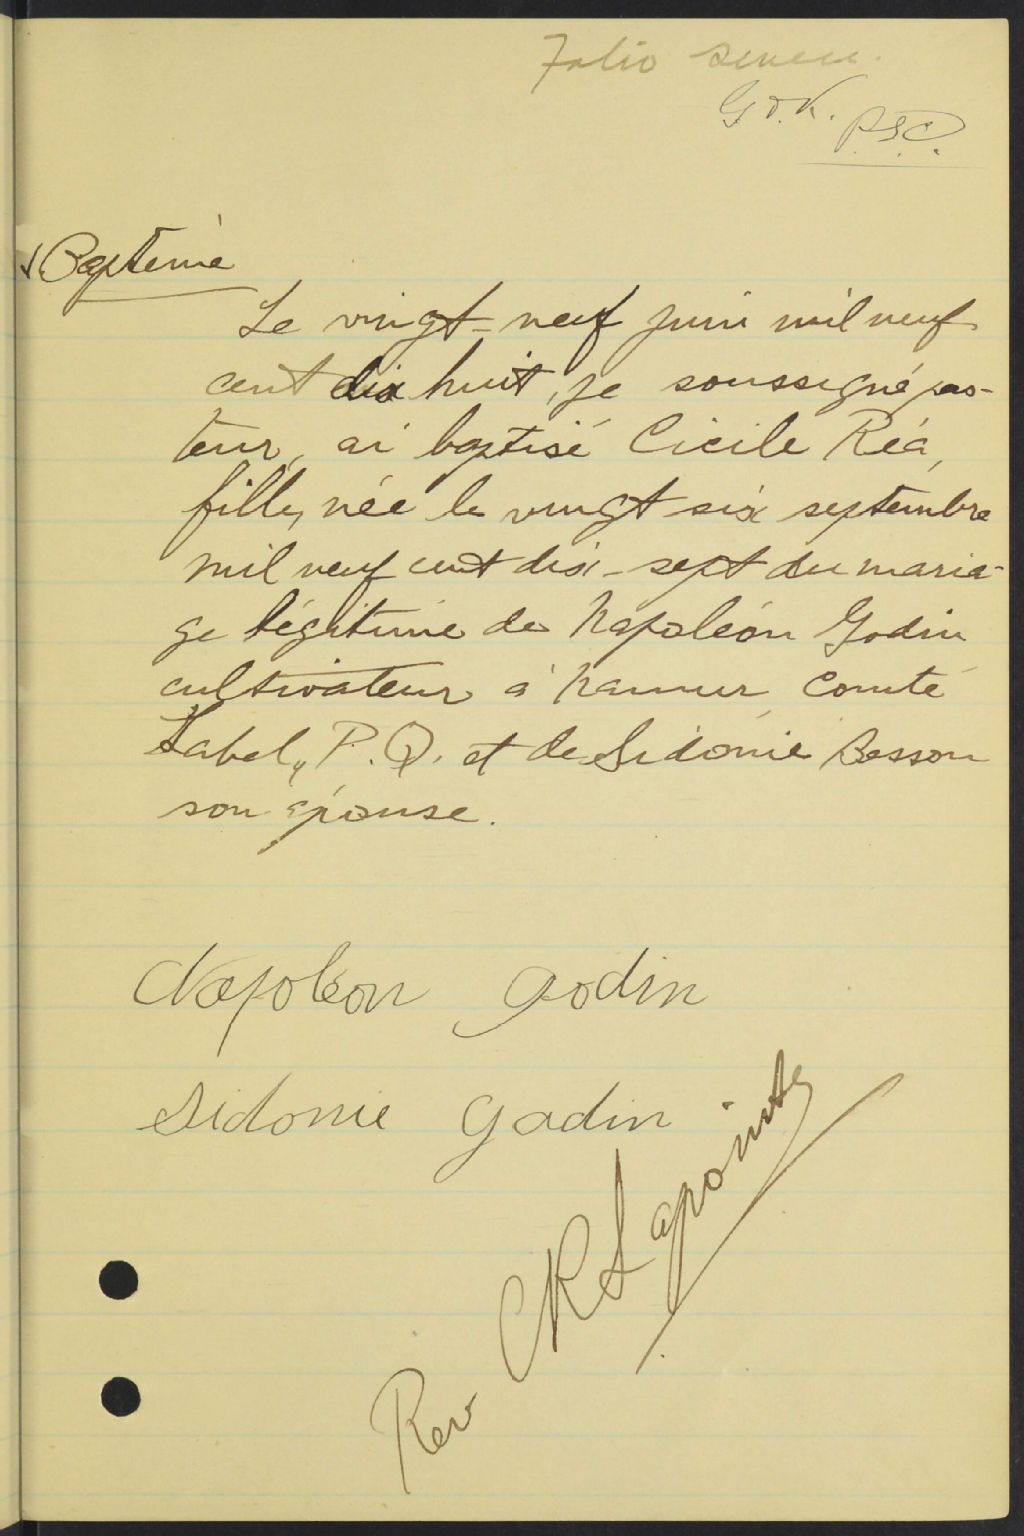 Folio seven.
G.D.K. P.S.C.
Baptême
Le vingt-neuf juin mil neuf
cent dix huit, je soussigné pas-
teur, ai baptisé Cicile Réa,
fille, née le vingt-six septembre
mil neuf cent dix-sept du maria-
ge légitime de Napoléon Godin
cultivateur à Namur, Comté
Label, P.Q. et de Sidonie Besson
son épouse.
Napoléon Godin
Sidonie Godin
Rev CR Lapointe